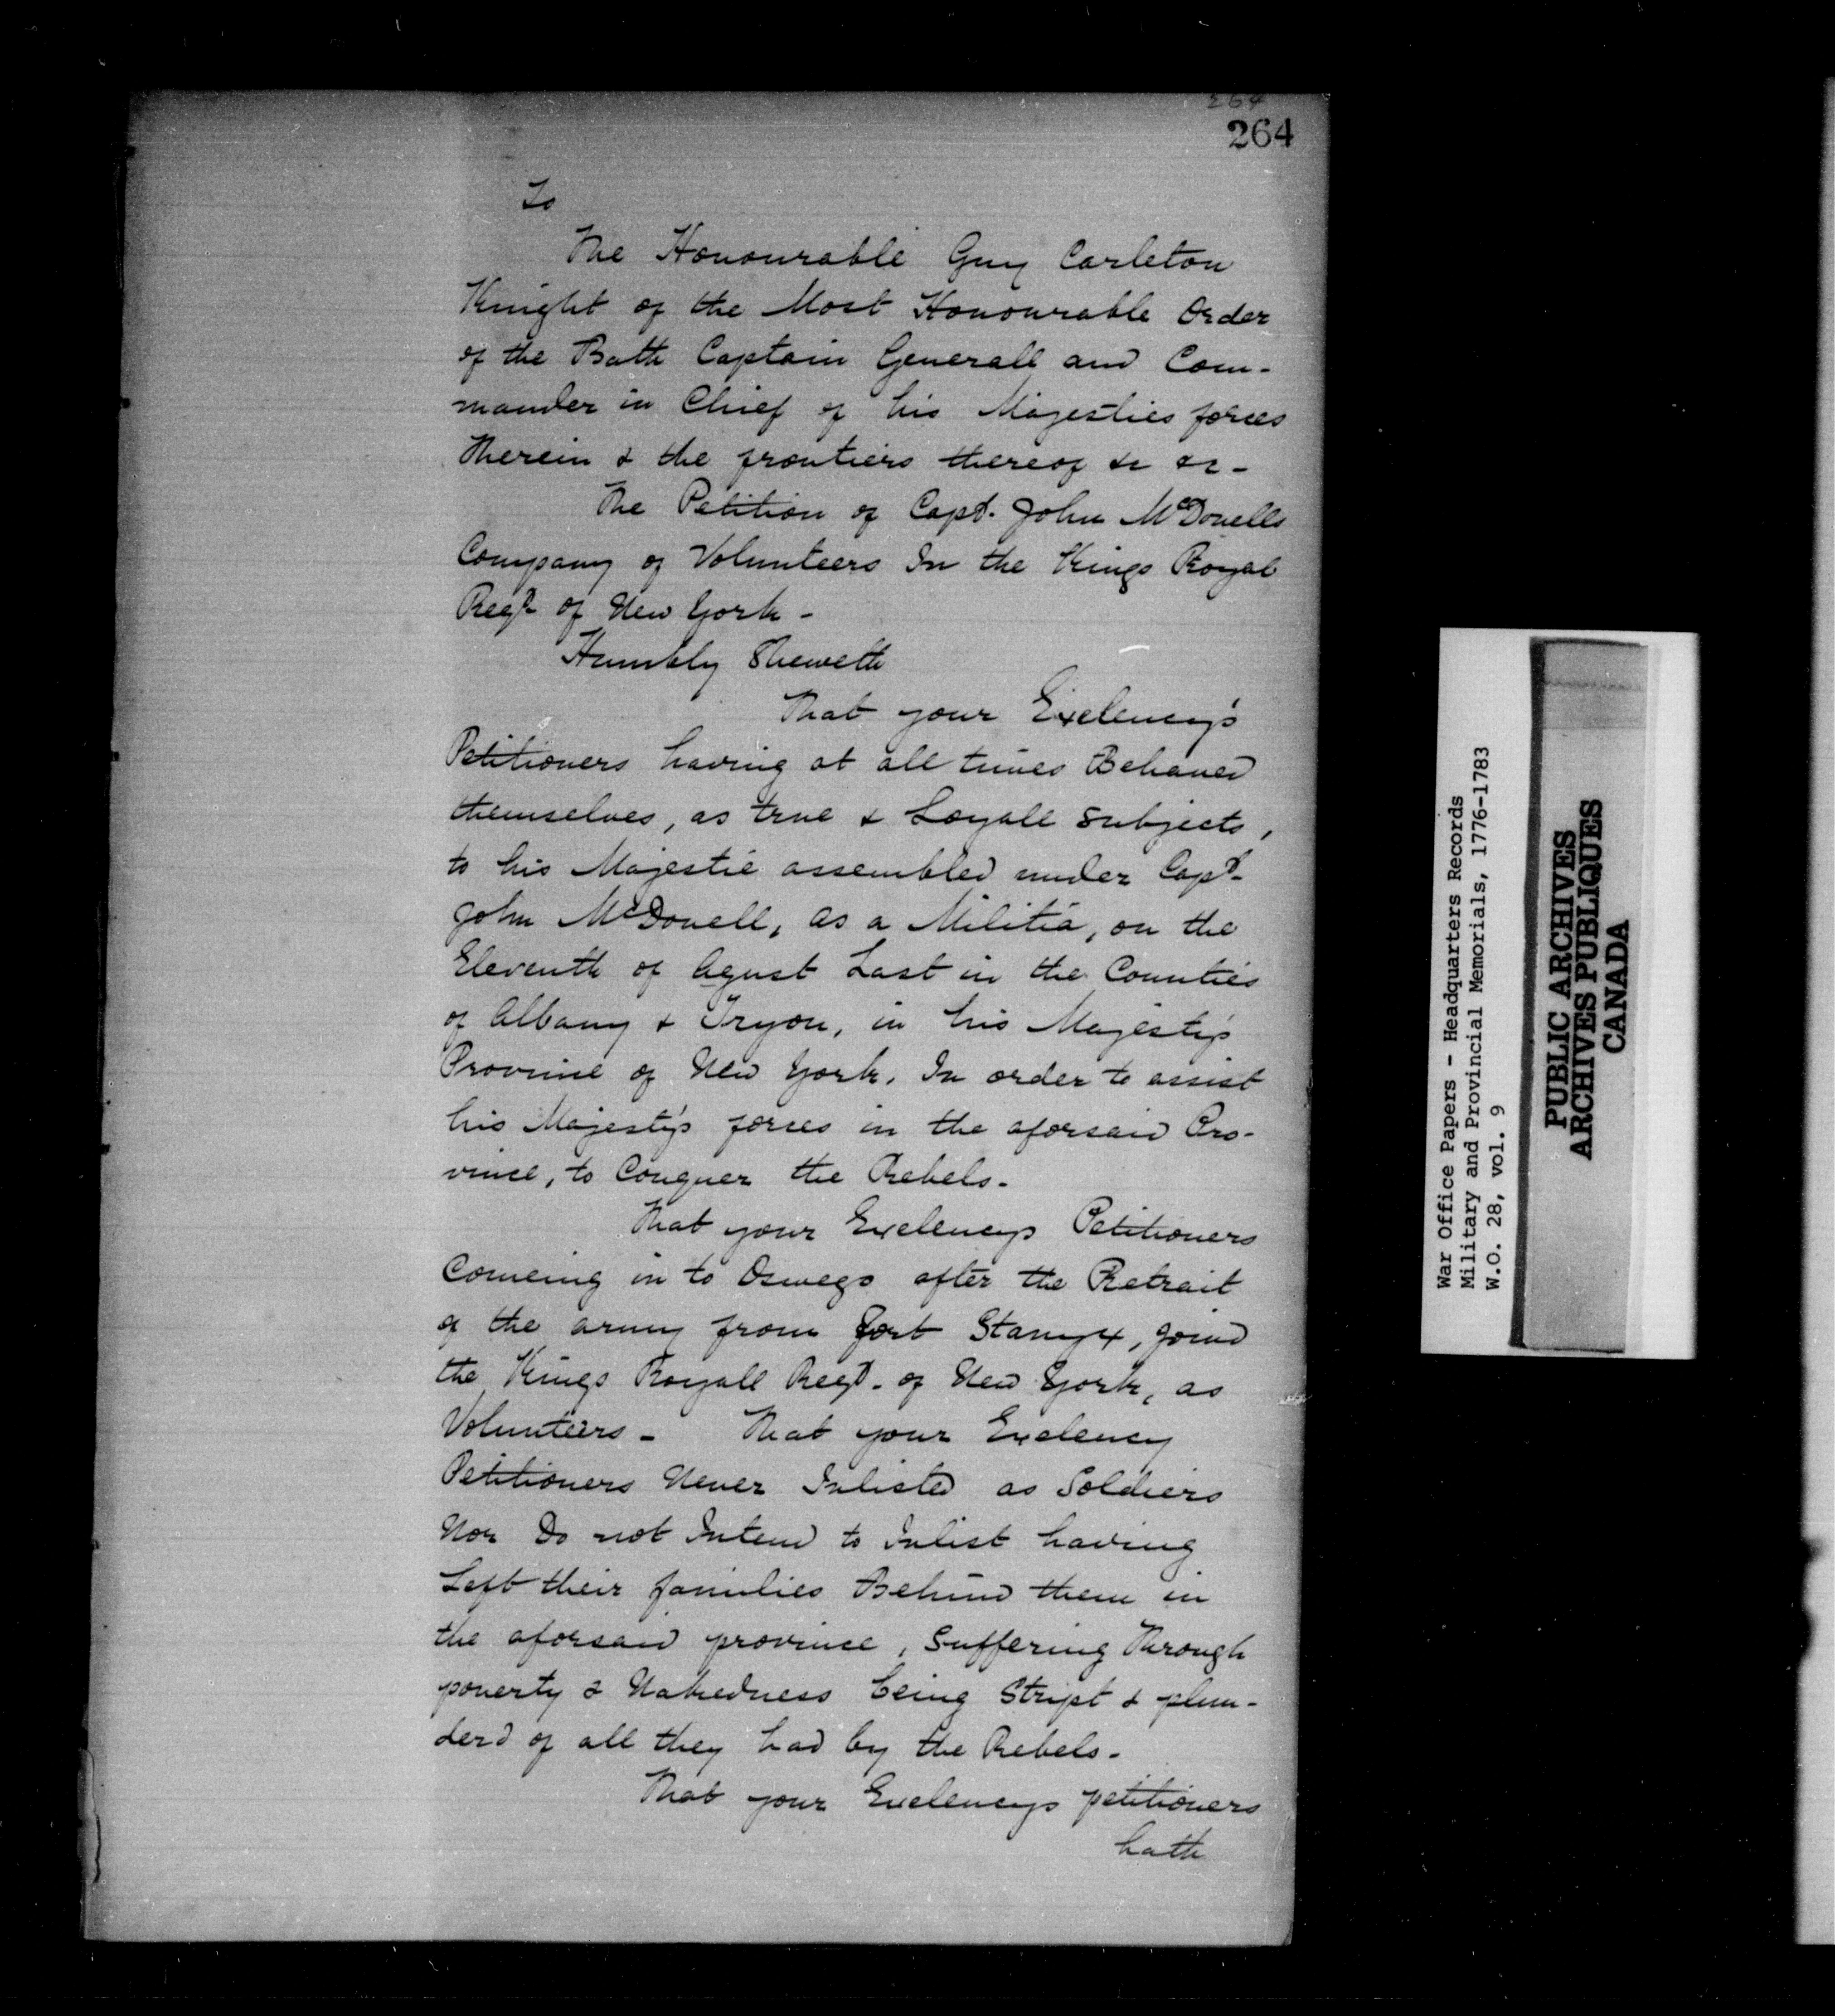 264
264
To
The Honourable Guy Carleton
Knight of the Most Honourable Order
of the Bath Captain Generall and Com-
mander in Chief of his Majesties forces
Therein & the frontiers thereof &c &c -
The Petition of Capt. John McDonells
Company of Volunteers In the Kings Royal
Regt of New York -
Humbly Sheweth
That your Exelency's
Petitioners having at all times Behaved
themselves, as true & Loyall subjects,
to his Majestie assembled under Capt.
John McDonell, as a Militia, on the
Eleventh of Agust Last in the Counties
of Albany & Tryon, in his Majesty's
Province of New York. In order to assist
his Majesty's forces in the aforsaid Pro-
vince, to Conquer the Rebels.
That your Exelencys Petitioners
Comeing in to Oswego after the Retrait
of the army from Fort Stanyx, joind
the Kings Royall Regt. of New York, as
Volunteers - That your Exelency
Petitioners Never Inlisted as Soldiers
Nor Do not Intend to Inlist having
Left their families Behind them in
the aforsaid province, Suffering Through
poverty & Nakedness being Stript & plun-
derd of all they had by the Rebels.
That your Exelencys petitioners
hath
War Office Papers - Headquarters Records
Military and Provincial Memorials, 1776-1783
W.O. 28, vol. 9
PUBLIC ARCHIVES
ARCHIVES PUBLIQUES
CANADA